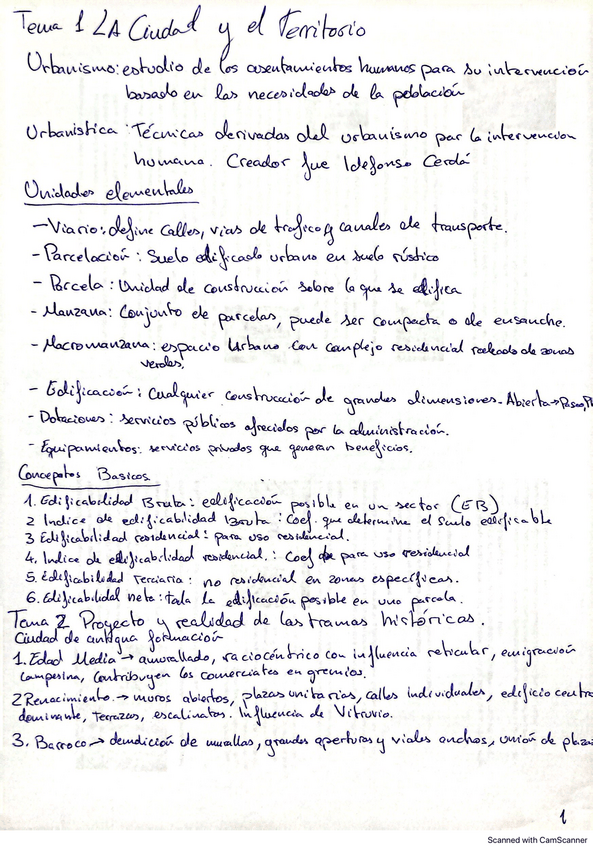 Tema 1 LA Ciudad y el Territorio
Urbanismo: estudio de los asentamientos humanos para su intervención
basado en las necesidades de la población
Urbanistica: Técnicas derivadas del urbanismo par la intervencion
humana. Creador fue Idefonso Cerdá
Unidades elementales
- Viario: define calles, vias de trafico y canales de transporte.
- Parcelación: Suelo edificado urbano en suelo rústico
- Parcela: Unidad de construcción sobre la que se edifica
- Manzana: Conjunto de parcelas, puede ser compacta o de ensanche.
- Macromanzana: espacio Urbano con complejo residencial rodeado de zonas
verdes.
- Edificación: Cualquier construcción de grandes dimensiones. Abierta →
- Dotaciones: servicios públicos ofrecidos por la administración.
- Equipamientos: servicios privados que generan beneficios.
Conceptos Basicos
1. Edificabilidad Bruta: edificación posible en un sector (EB)
2 Indice de edificabilidad Bruta: Coef. que determine el Suelo edificable
3 Edificabilidad residencial: para uso residencial.
4. Indice de edificabilidad residencial.: Coef de para uso residencial
5. Edificabilidad Terciaria: no residencial en zonas específicas.
6. Edificabilidad neta: toda la edificación posible en una parcela.
Tema 2 Proyecto y realidad de las tramas históricas.
Ciudad de antigua formación
1. Edad Media → amurallado, raciocéntrico con influencia reticular, emigración
campesina, contribuyen los comerciates en gremios.
2 Renacimiento. → muros abiertos, plazas unitarias, calles individuales, edificio centra
dominante, terrazas, escalinatas. Influencia de Vitruvio.
3. Barroco → demolición de murallas, grandes aperturas y viales anchos, unión de plaza
1
Scanned with CamScanner